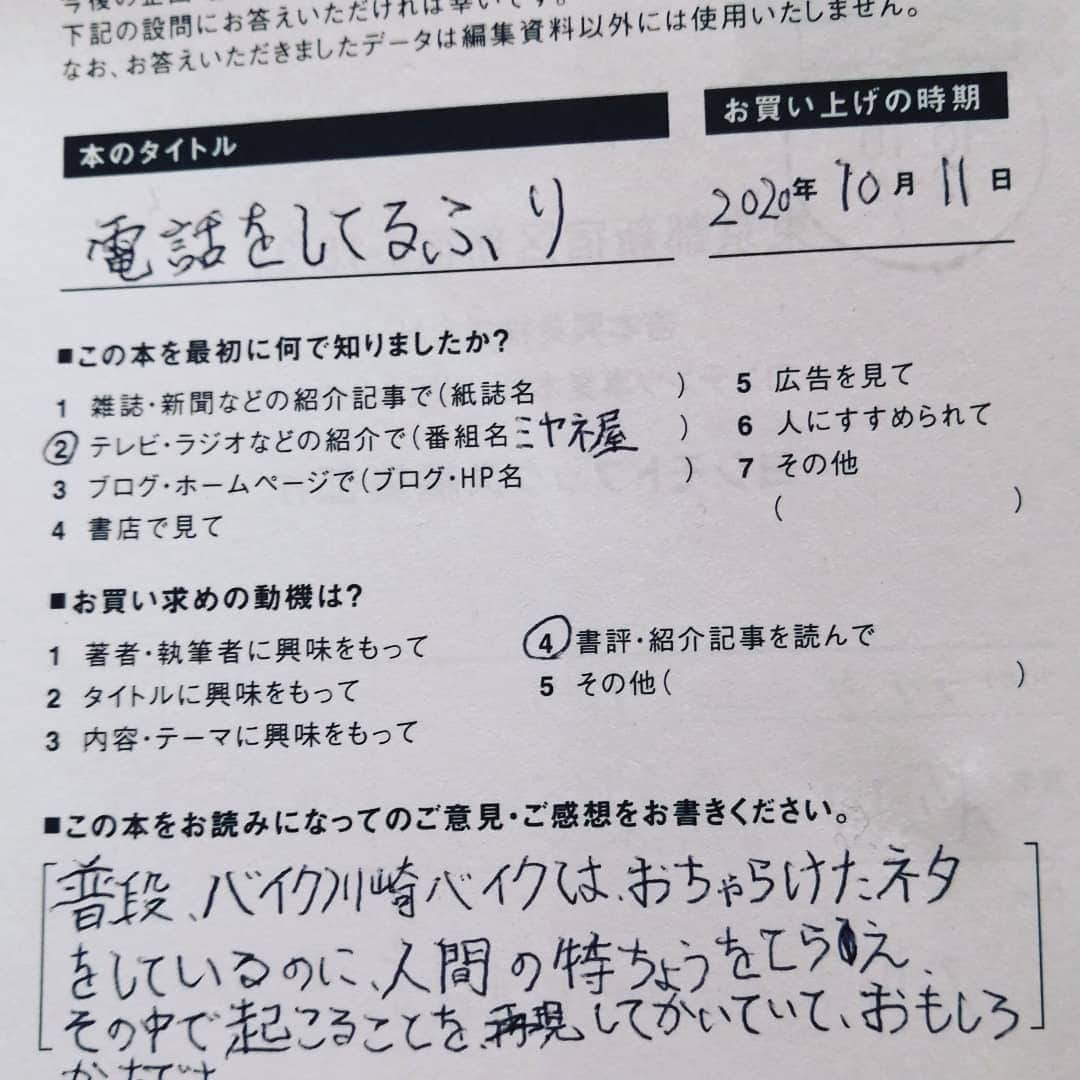 下記の設問にお答えいただければ幸いです。
なお、お答えいただきましたデータは編集資料以外には使用いたしません。
本のタイトル
電話をしてるふり
お買い上げの時期
2020年10月11日
■この本を最初に何で知りましたか?
1 雑誌・新聞などの紹介記事で(紙誌名 )
2 テレビ・ラジオなどの紹介で(番組名ミヤネ屋 )
3 ブログ・ホームページで(ブログ・HP名 )
4 書店で見て
5 広告を見て
6 人にすすめられて
7 その他
( )
■お買い求めの動機は?
1 著者・執筆者に興味をもって
2 タイトルに興味をもって
3 内容・テーマに興味をもって
4 書評・紹介記事を読んで
5 その他( )
■この本をお読みになってのご意見・ご感想をお書きください。
普段、バイク川崎バイクは、おちゃらけたネタ
をしているのに、人間の特ちょうをとらえ、
その中で起こることを、再現してかいていて、おもしろ